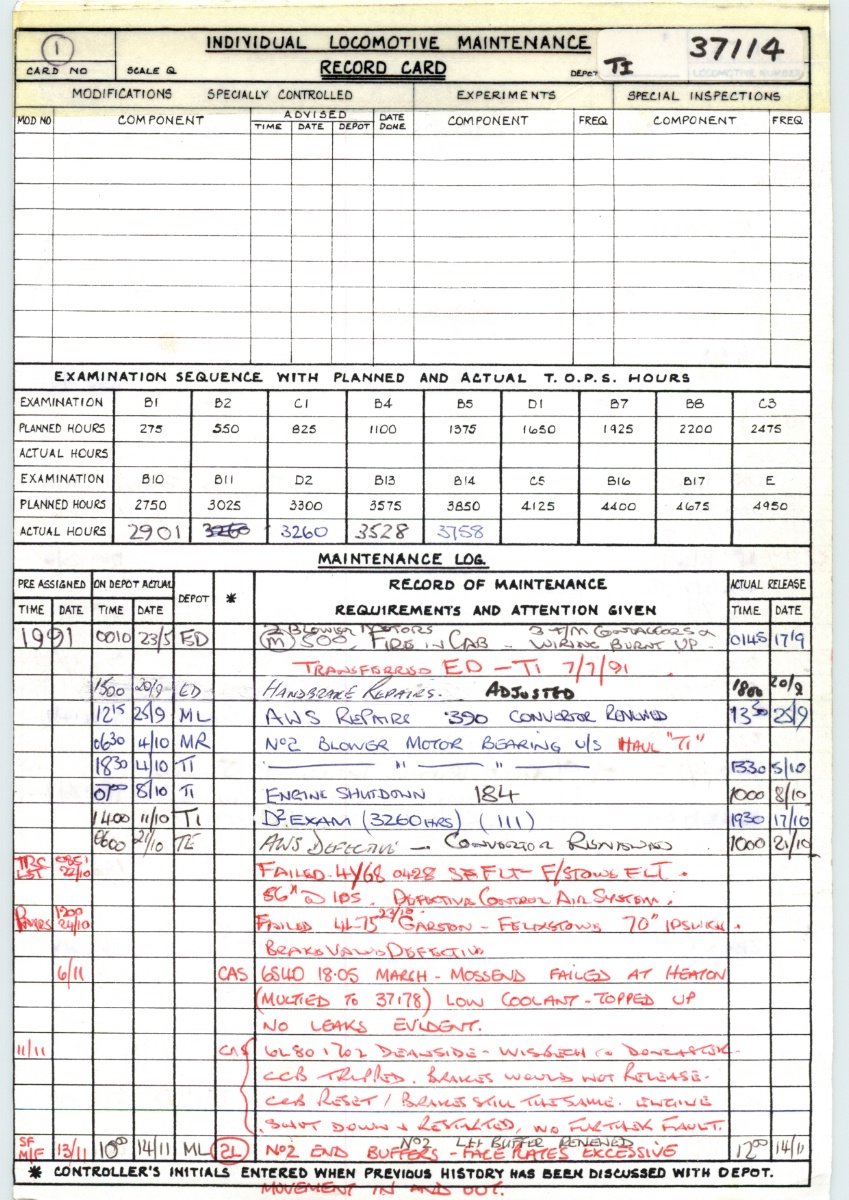 1 INDIVIDUAL LOCOMOTIVE MAINTENANCE 37114
CARD NO SCALE Q RECORD CARD DEPOT TI LOCOMOTIVE NUMBER
MODIFICATIONS SPECIALLY CONTROLLED EXPERIMENTS SPECIAL INSPECTIONS
MOD NO COMPONENT ADVISED DATE DONE COMPONENT FREQ COMPONENT FREQ
TIME DATE DEPOT
EXAMINATION SEQUENCE WITH PLANNED AND ACTUAL T.O.P.S. HOURS
EXAMINATION B1 B2 C1 B4 B5 D1 B7 B8 C3
PLANNED HOURS 275 550 825 1100 1375 1650 1925 2200 2475
ACTUAL HOURS
EXAMINATION B10 B11 D2 B13 B14 C5 B16 B17 E
PLANNED HOURS 2750 3025 3300 3575 3850 4125 4400 4675 4950
ACTUAL HOURS 2901 3260 3260 3528 3758
MAINTENANCE LOG
PRE ASSIGNED ON DEPOT ACTUAL DEPOT * RECORD OF MAINTENANCE ACTUAL RELEASE
TIME DATE TIME DATE REQUIREMENTS AND ATTENTION GIVEN TIME DATE
2 BLOWER MOTORS 3 T/M CONTACTORS &
1991 0010 23/5 ED M 500, FIRE IN CAB - WIRING BURNT UP. 0145 17/9
TRANSFERRED ED - TI 7/7/91
1500 20/9 ED HANDBRAKE REPAIRS. ADJUSTED 1800 20/9
1215 25/9 ML AWS REPAIRS 390 CONVERTOR RENEWED 1330 25/9
0630 4/10 MR No2 BLOWER MOTOR BEARING U/S HAUL "TI"
1830 4/10 TI " " 1330 5/10
0700 8/10 TI ENGINE SHUTDOWN 184 1000 8/10
1400 11/10 TI D2 EXAM (3260 HRS) (111) 1930 17/10
0600 21/10 TE AWS DEFECTIVE - CONVERTOR RENEWED 1000 21/10
22/10 FAILED 4Y68 0428 SF FLT - F/STOWE FLT.
86" @ IPS. DEFECTIVE CONTROL AIR SYSTEM.
1200 24/10 FAILED 4L75 23/10 GARSTON - FELIXSTOWE 70" IPSWICH.
BRAKE VALVE DEFECTIVE
6/11 CAS 6S40 18.05 MARCH - MOSSEND FAILED AT HEATON
(MULTIED TO 37178) LOW COOLANT - TOPPED UP
NO LEAKS EVIDENT.
11/11 CAS 6L80 1702 DEANSIDE - WISBECH @ DONCASTER.
CCB TRIPPED. BRAKES WOULD NOT RELEASE.
CCB RESET / BRAKES STILL THE SAME. ENGINE
SHUT DOWN & RESTARTED, NO FURTHER FAULT.
No2 LH BUFFER RENEWED
SF M/F 13/11 1000 14/11 ML 2L No2 END BUFFERS - FACE PLATES EXCESSIVE 1200 14/11
* CONTROLLER'S INITIALS ENTERED WHEN PREVIOUS HISTORY HAS BEEN DISCUSSED WITH DEPOT.
MOVEMENT IN AND OUT.